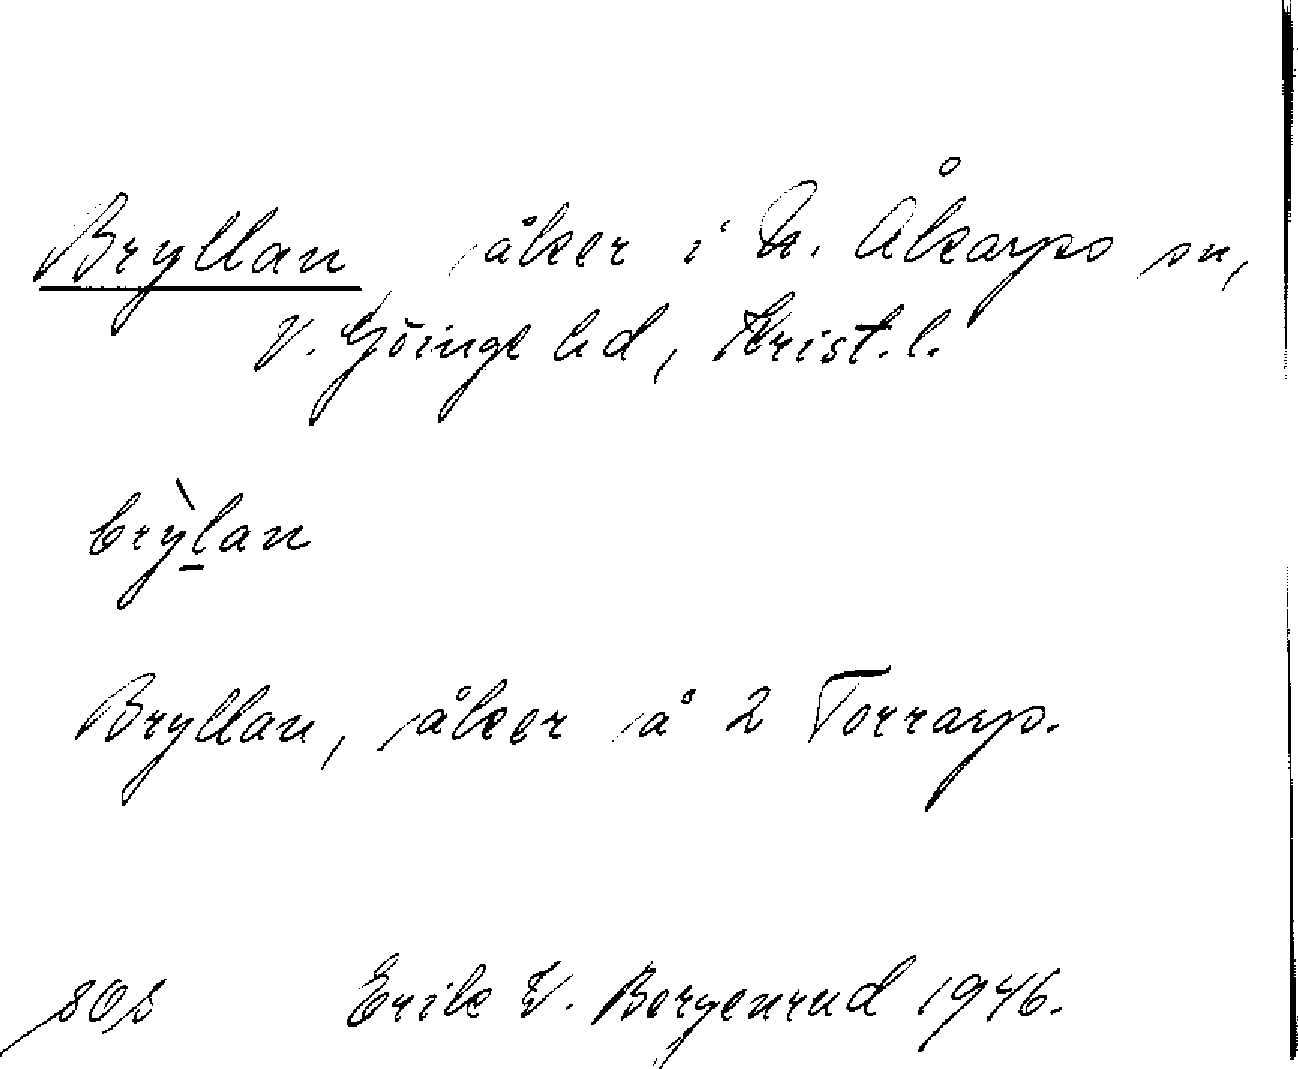 Bryllan åker i N. Åkarps sn,
V. Göinge hd, Krist. l.
brỳlan
Bryllan, åker å 2 Torrarp.
808 Erik W. Bergenrud 1946.